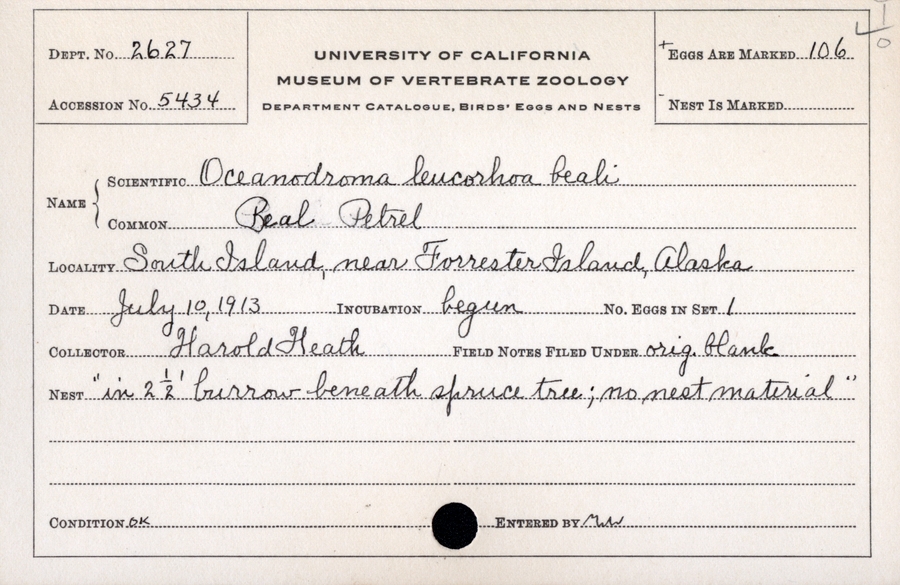 Dept. No. 2627
Accession No. 5434
University of California
Museum of Vertebrate Zoology
Department Catalogue, Birds' Eggs and Nests
+ Eggs Are Marked 106
- Nest Is Marked
1/0
Name { Scientific Oceanodroma leucorhoa beali
Common Beal Petrel
Locality South Island, near Forrester Island, Alaska
Date July 10, 1913 Incubation begun No. Eggs in Set 1
Collector Harold Heath Field Notes Filed Under orig. blank
Nest "in 2 1/2' burrow beneath spruce tree; no nest material"
Condition OK Entered by